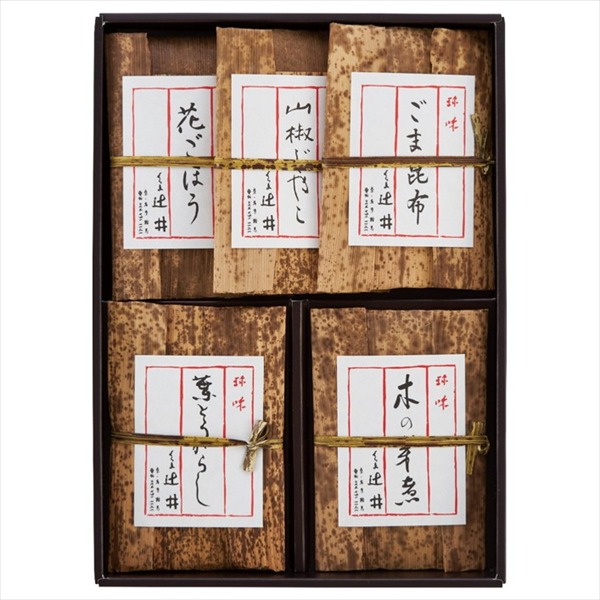 珍味
ごま昆布
くらま辻井
山椒じゃこ
くらま辻井
花ごぼう
くらま辻井
珍味
木の芽煮
くらま辻井
珍味
葉とうがらし
くらま辻井